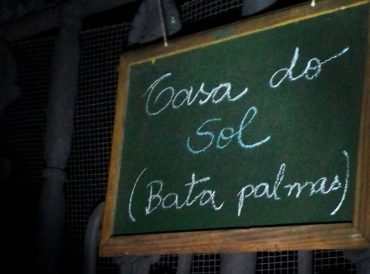 Casa do
Sol
(Bata palmas)